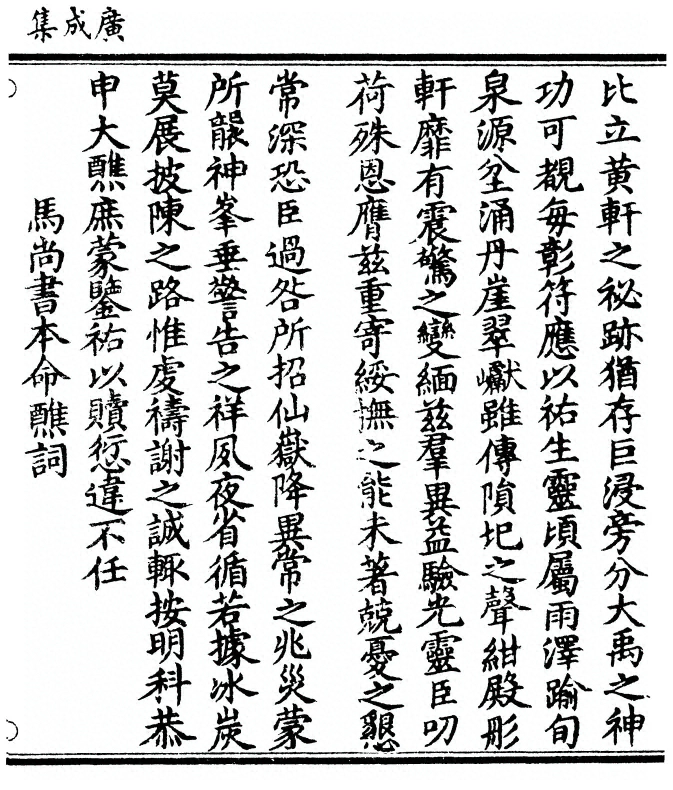 廣成集
比立黃軒之祕跡猶存巨浸旁分大禹之神
功可覩每彰符應以祐生靈頃屬雨澤踰旬
泉源坌涌丹崖翠巘雖傳隕圯之聲紺殿彤
軒靡有震驚之變緬茲羣異益驗光靈臣叨
荷殊恩膺茲重寄綏撫之能未著兢憂之懇
常深恐臣過咎所招仙嶽降異常之兆災蒙
所龍神峯垂警告之祥夙夜省循若據冰炭
莫展披陳之路惟虔禱謝之誠輒按明科恭
申大醮庶蒙鑒祐以贖愆違不任
馬尚書本命醮詞